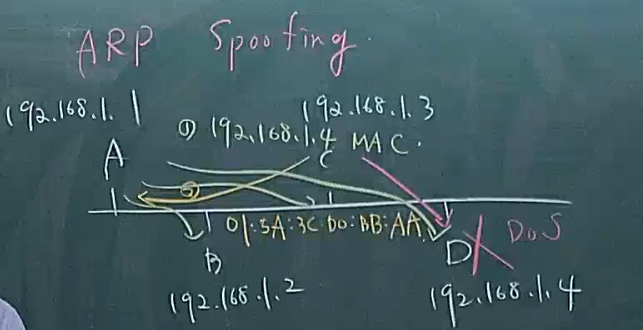 ARP Spoofing.
192.168.1.1
192.168.1.3
① 192.168.1.4 MAC.
A
C
②
01:5A:3C:D0:BB:AA
B
D
DoS
192.168.1.2
192.168.1.4